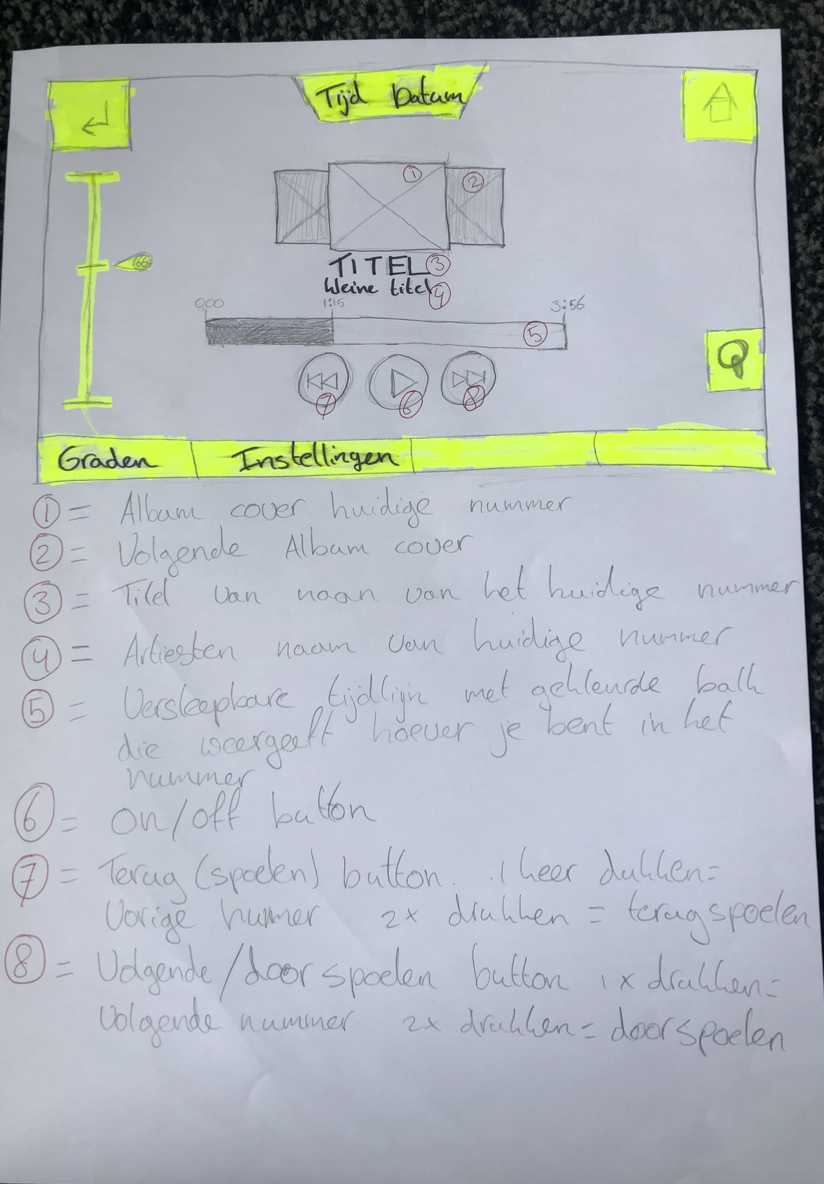 Tijd Datum
1
2
TITEL 3
kleine titel 4
0:00 1:15 3:56
5
7 6 8
Graden Instellingen
1 = Album cover huidige nummer
2 = Volgende Album cover
3 = Titel van naan van het huidige nummer
4 = Artiesten naam van huidige nummer
5 = Versleepbare tijdlijn met gekleurde balk
die weergeeft hoever je bent in het
nummer
6 = on/off button
7 = Terug (spoelen) button. 1 keer dukken=
Vorige nummer 2x drukken = terugspoelen
8 = Volgende/door spoelen button 1x drukken=
Volgende nummer 2x drukken = doorspoelen